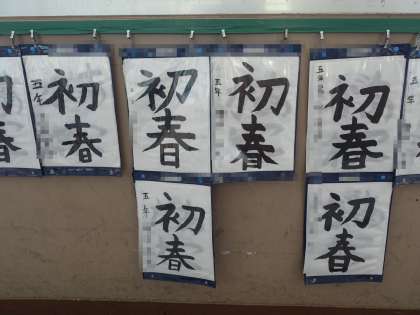 初春
五年
初春
初春
五年
初春
五年
初春
五年
初春
五年
初春